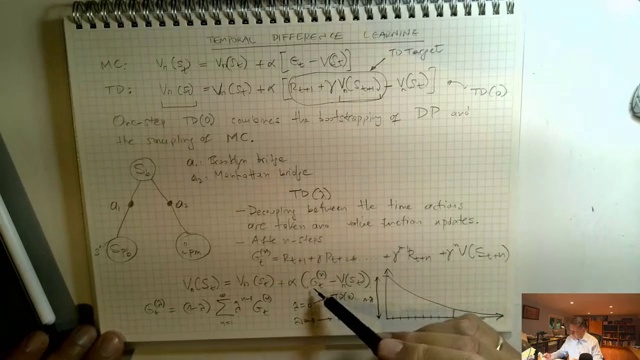 TEMPORAL DIFFERENCE LEARNING
MC: Vπ(St) = Vπ(St) + α [Gt − V(St)]
TD Target
TD: Vπ(St) = Vπ(St) + α [Rt+1 + γVπ(St+1) − Vπ(St)]
TD(0)
One-step TD(0) combines the bootstrapping of DP and
the sampling of MC.
S6
a1: Brooklyn bridge
a2: Manhattan bridge
a1
a2
TD(λ)
- Decoupling between the time actions
are taken and value function updates.
- After n-steps
Gt(n) = Rt+1 + γ Rt+2 + γn-1 Rt+n + γn V(St+n)
Vπ(St) = Vπ(St) + α (Gt(n) − Vπ(St))
Gt(λ) = (1-λ) ∑ n=1 ∞ λn-1 Gt(n)